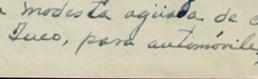 modesta aguada de
Tuco, para automóvile